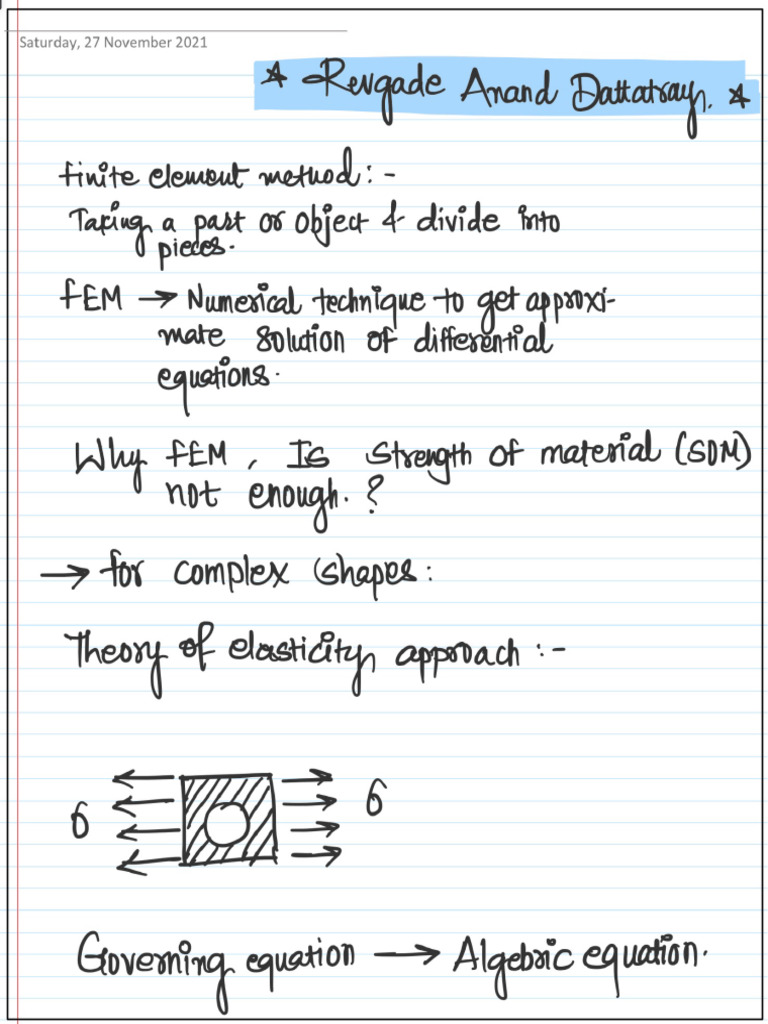 Saturday, 27 November 2021
* Revgade Anand Dattatray. *
finite element method :-
Taking a part or object & divide into
pieces.
fEM → Numerical technique to get approxi-
mate solution of differential
equations.
Why fEM, Is strength of material (SOM)
not enough. ?
→ for complex shapes :
Theory of elasticity approach :-
6 6
Governing equation → Algebric equation.